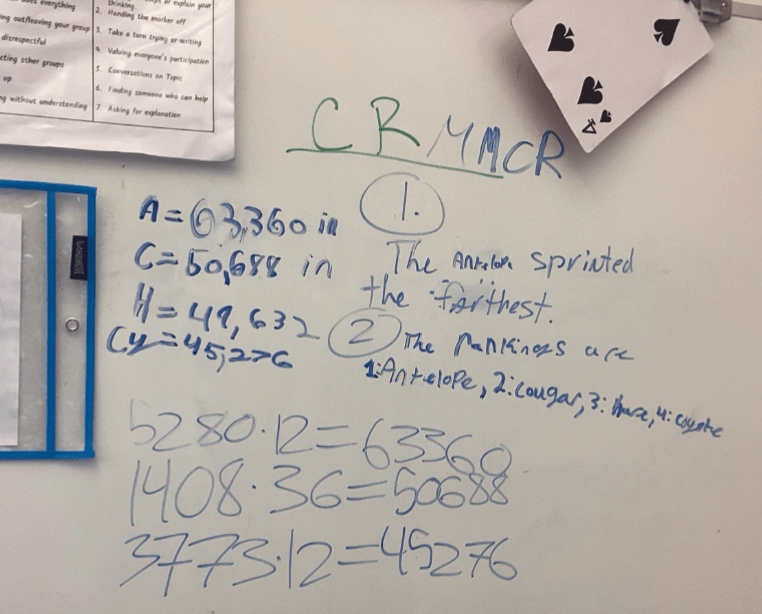 everything
ing out/leaving your group
disrespectful
cting other groups
up
ng without understanding
thinking.
2. Handing the marker off
3. Take a turn trying or writing
4. Valuing everyone's participation
5. Conversations on Topic
6. Finding someone who can help
7. Asking for explanation
CRMMCR
A=63,360 in
C=50,688 in
H=49,632
Cy=45,276
1.
The Antelope sprinted
the farthest.
2 The rankings are
1:Antelope, 2:cougar, 3: hare, 4: coyote
5280·12=63360
1408·36=50688
3773·12=45276